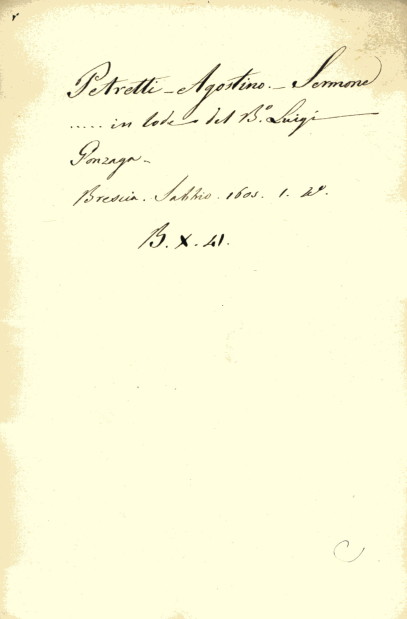 Petretti - Agostino. - Sermone
..... in lode del B.º Luigi
Gonzaga -
Brescia. Sabbio. 1605. 1. 4º.
B. X. 41.